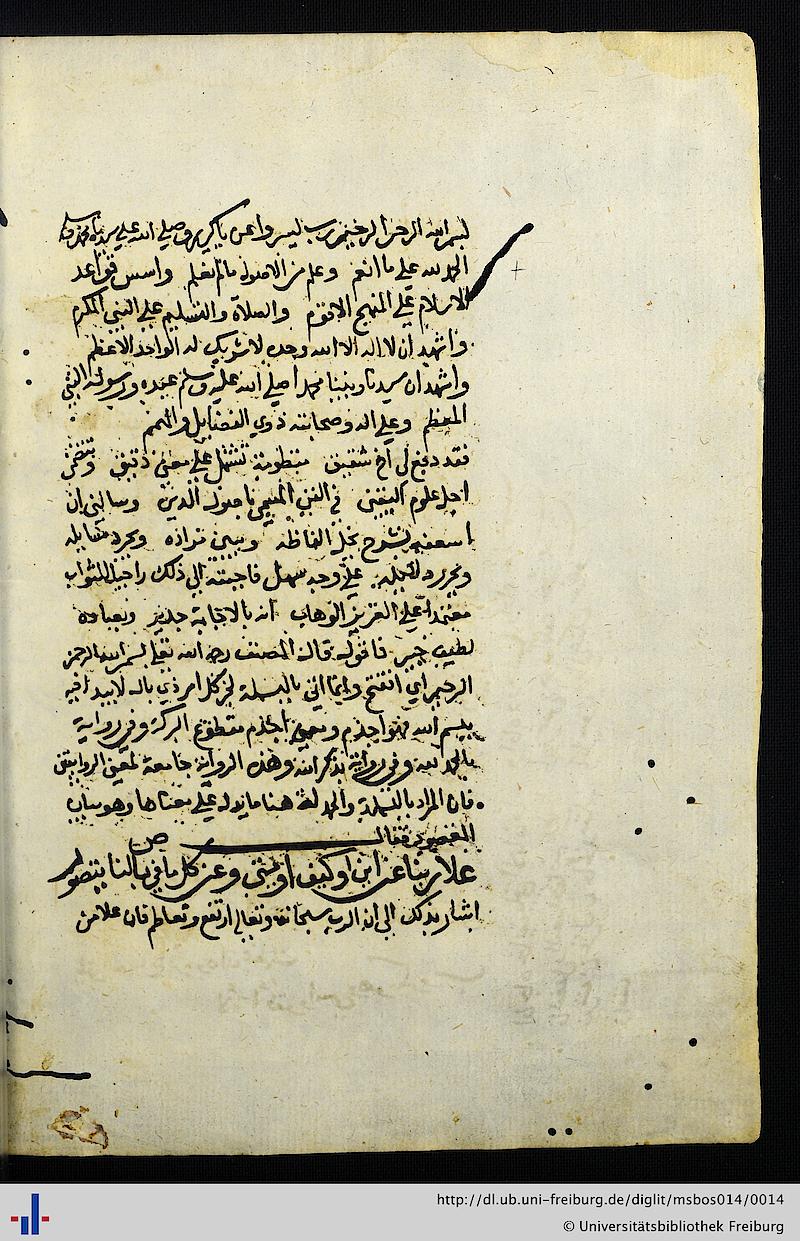 بسم الله الرحمن الرحيم رب يسر واعن يا كريم وصلي الله علي سيدنا محمد وسلم
الحمد لله علي ما انعم وعلم من الاصول مالم نعلم واسس قواعد
الاسلام علي المنهج الاقوم والصلاة والتسليم علي النبي المكرم
واشهد ان لا اله الا الله وحده لا شريك له الواحد الاعظم
واشهد ان سيدنا ونبينا محمدا صلي الله عليه وسلم عبده ورسوله النبي
المعظم وعلي اله وصحابته ذوي الفضايل والهمم
فقد دفع لي اخ شقيق منظومة تشتمل علي معني دقيق وتتضمن
اجل علوم اليقين في الفن المسمي باصول الدين وسالني ان
اسعفه بشرح يحل الفاظه ويبين مراده ويجرد مسايله
ويحرر دلايله علي وجه سهل فاجبته الي ذلك راجيا للثواب
معتمدا علي العزيز الوهاب انه بالاجابة جدير وبعباده
لطيف خبير فاقول قال المصنف رحمه الله تعلي بسم الله الرحمن
الرحيم اي افتتح وانما اتي بالبسملة لخبر كل امر ذي بال لا يبدا فيه
ببسم الله فهو اجذم ومعني اجذم مقطوع البركة وفي رواية
بالحمد لله وفي رواية بذكر الله وهذه الرواية جامعة لمعني الروايتين
فان المراد بالبسملة والحمدلة هنا ما يدل علي معناها وهو بيان
المقصود فقال ص
علا ربنا عن اين او كيف او متي وعن كل ما في بالنا يتصور
اشار بذلك الي ان الرب سبحانه وتعالي ارتفع وتعاظم فان علا من
http://dl.ub.uni-freiburg.de/diglit/msbos014/0014
© Universitätsbibliothek Freiburg